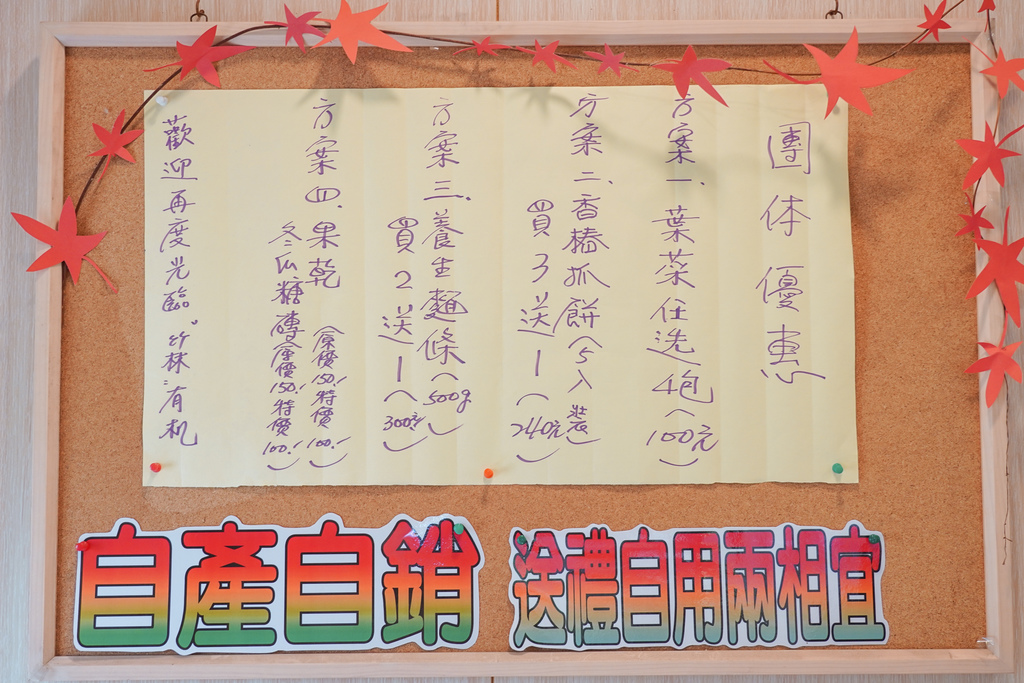 團体優惠
方案一、葉菜任选4包(100元)
方案二、香椿抓餅(5入裝)
買3送1(240元)
方案三、養生麵條(500g)
買2送1(300元)
方案四、果乾(原價150!特價100!)
冬瓜糖磚(原價150!特價100!)
歡迎再度光臨"竹林"有机
自產自銷
送禮自用兩相宜